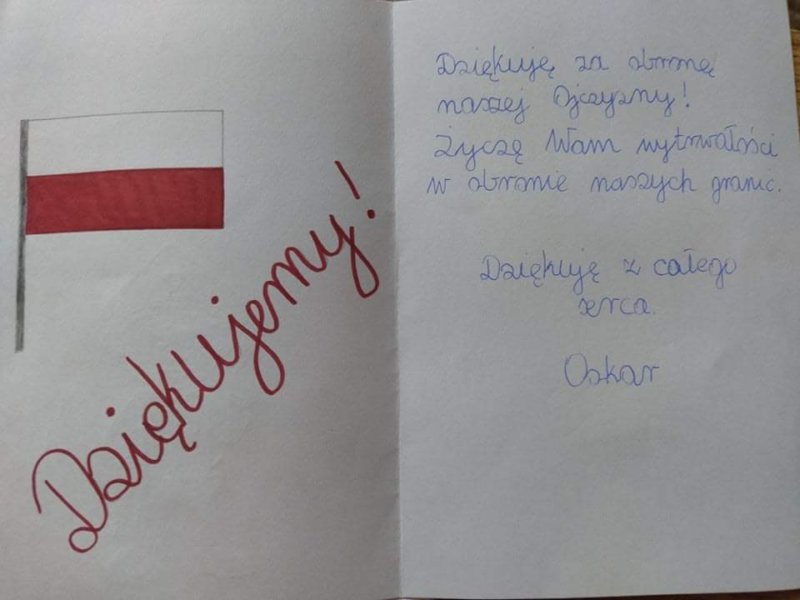 Dziękujemy!
Dziękuję za obronę
naszej Ojczyzny!
Życzę Wam wytrwałości
w obronie naszych granic.
Dziękuję z całego
serca.
Oskar